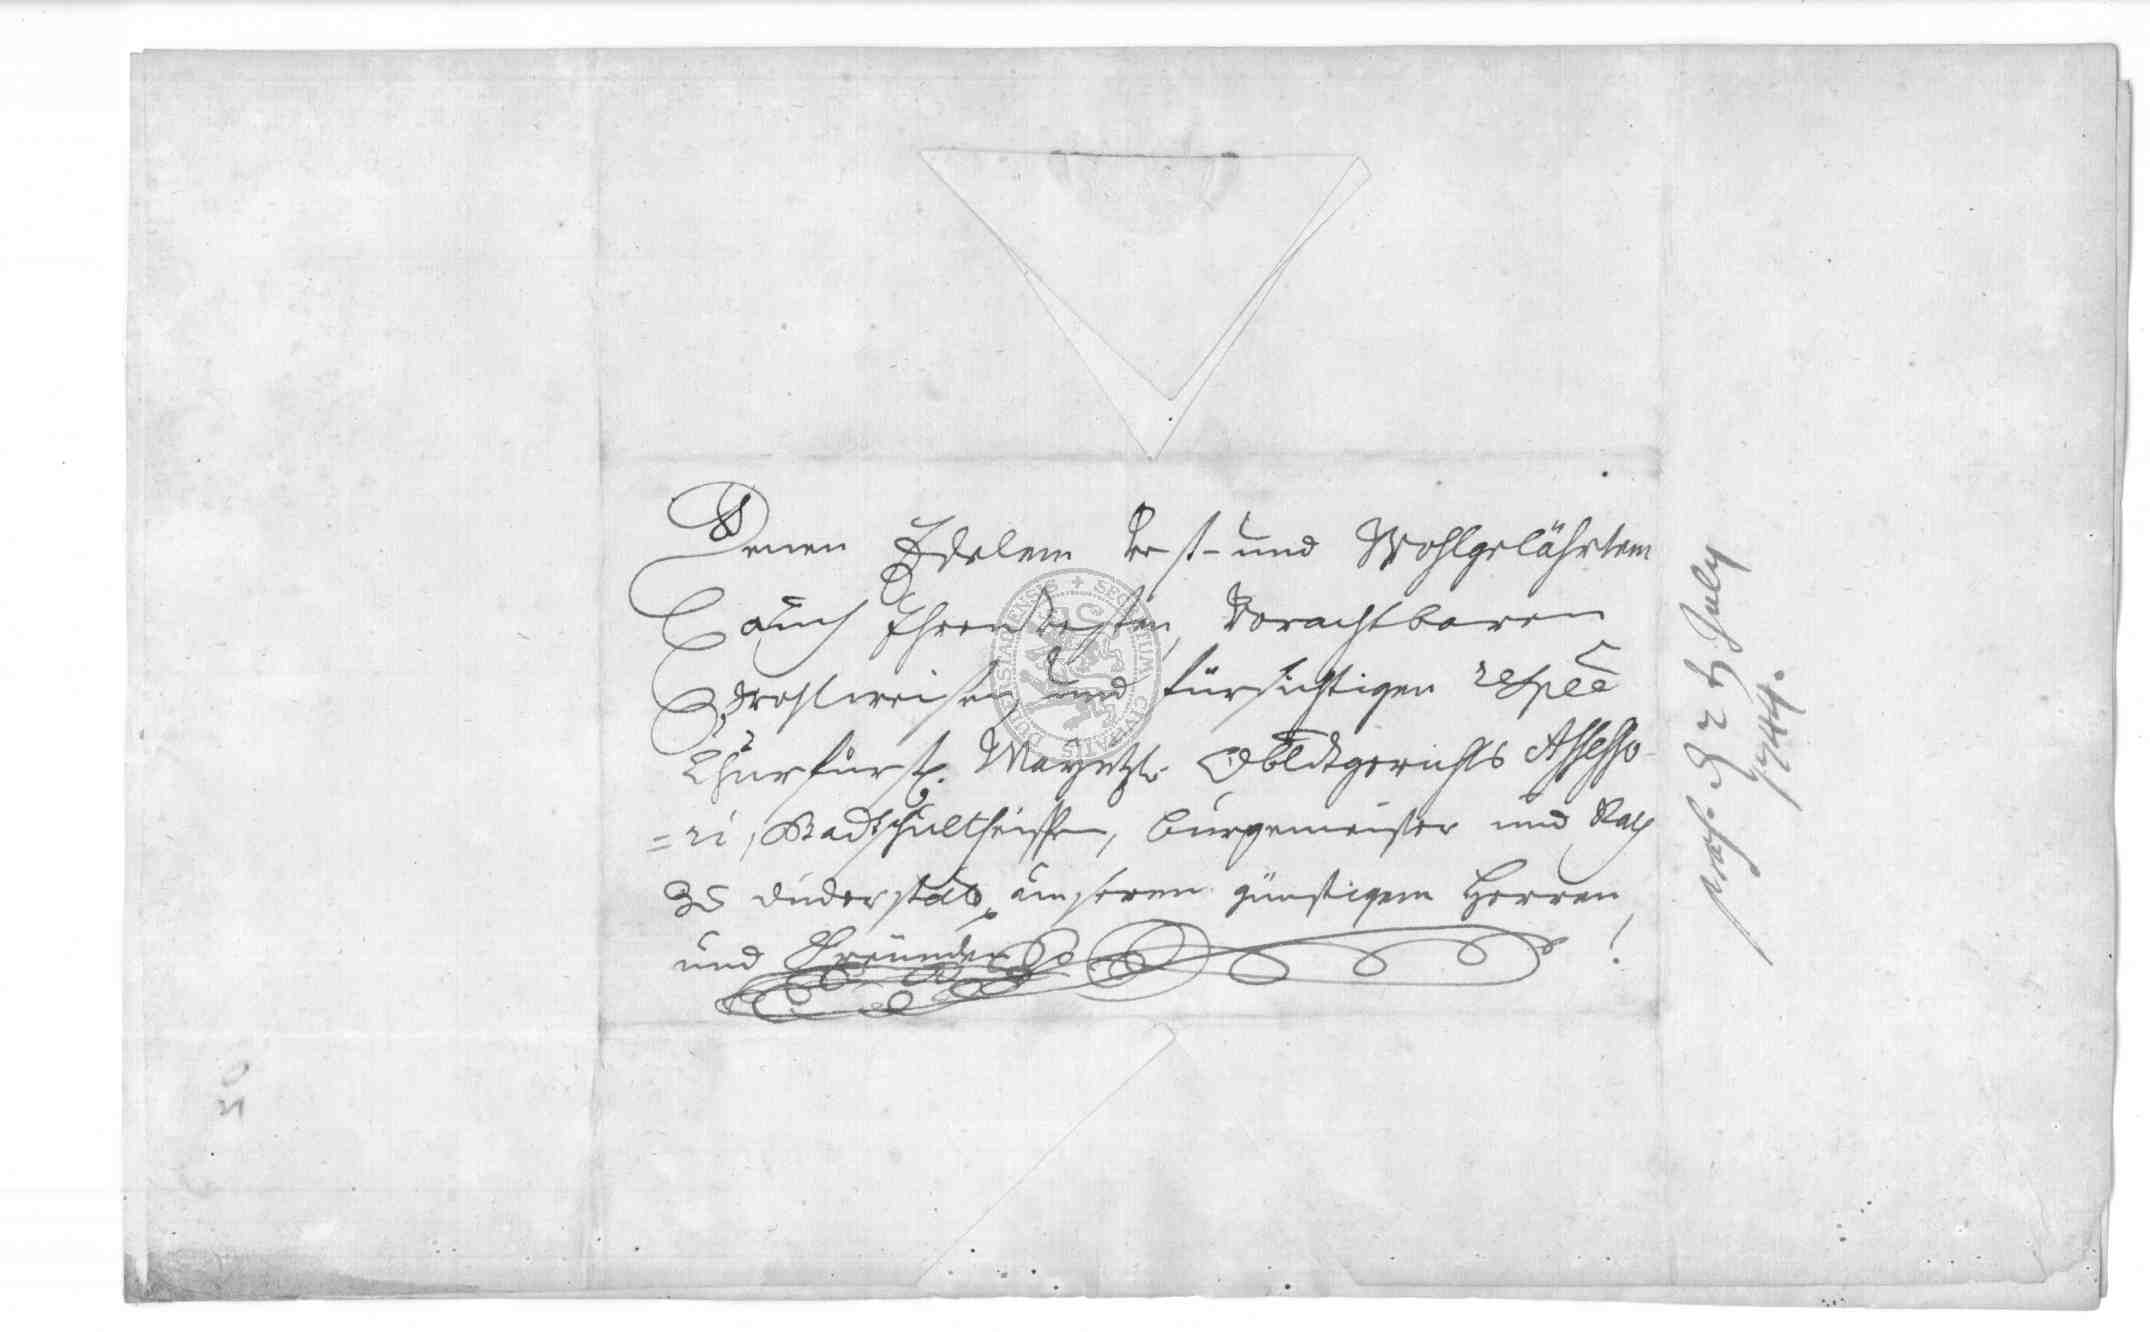 Denen Edelen Vest- und Wohlgelährten
auch Ehrenvesten, Vorachtbaren
Wohlweisen und fürsichtigen respec
Churfürstl. Mayntzl. Obldtgerichts Assesso-
=ri, Stadtschultheissen, Burgemeister und Rath
zu Duderstadt, unseren günstigen Herren
und Freunden !
præs. d 2 t July
1744.
SECRETUM CIVITATIS DUDERSTADENSIS